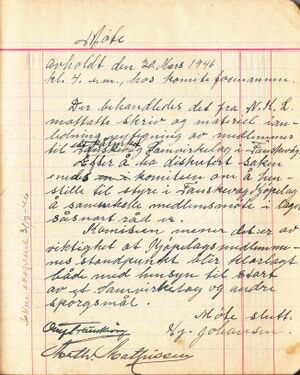 Møte
avholdt den 20. Mars 1946
kl. 4. e.m., hos komite formannen.
Der behandledes det fra N.K.L.
mottatte skriv og materiel
av medlemmer
til et Samvirkelag i
Efter å ha diskutert saken
enes komiteen om å hen-
stille til styre i Kjøpelag
å medlemsmøte i
såsnart råd er.
Komiteen mener det er av
viktighet at Kjøpelagsmedlemme-
nes standpunkt blir klarlagt
både med hensyn til start
av et Samvirkelag og andre
spørgsmål.
Møte slutt.
Johansen.
Mathissen